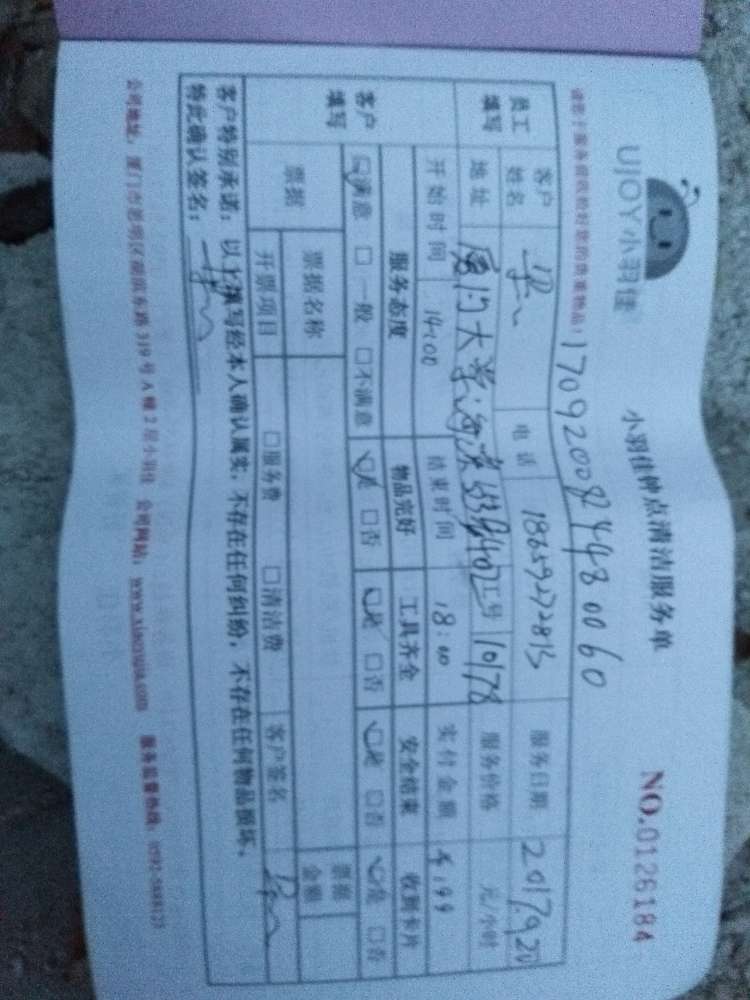 UJOY小羽佳
小羽佳钟点清洁服务单
NO.0126184
1709200824480060
员工填写
客户姓名
电话 18659272813
服务日期 2017.9.20
地址 厦门大学海滨
402
工号 10178
服务价格 元/小时
开始时间 14:00 结束时间 18:00 实付金额
客户填写
服务态度 物品完好 工具齐全 安全结束 收到卡片
满意 □一般 □不满意 是 □否 是 □否 是 □否 是 □否
票据
票据名称
票据金额
开票项目 □服务费 □清洁费 客户签名
客户特别承诺:以上填写经本人确认属实,不存在任何纠纷,不存在任何物品损坏,
特此确认签名:
公司地址:厦门市思明区湖滨东路319号A幢2层小羽佳 公司网站:www.xiaoyujia.com 服务监督热线: